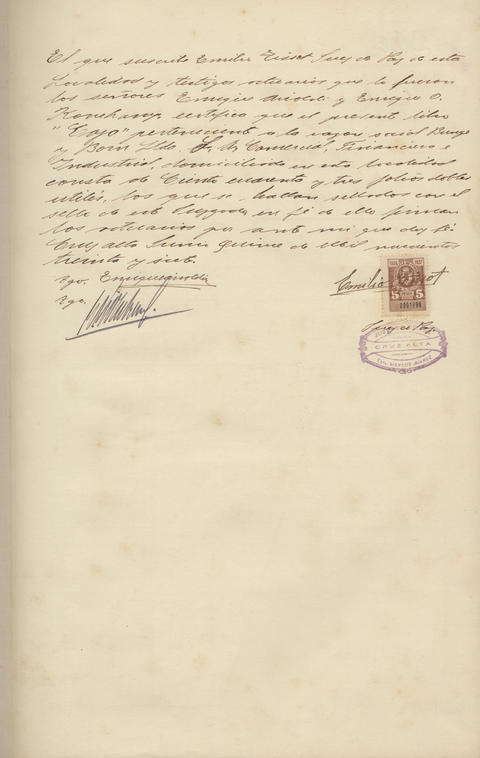 El que suscribe Emilio Tissot Juez de Paz de esta
Localidad y testigos notarios que lo fueron
los señores Enrique y Emilio O.
certifico que el presente libro
"Caja" perteneciente a la razon social Bunge
y Born Ltda. S. A. Comercial, Financiera e
Industrial, domiciliada en esta localidad
consta de Ciento cuarenta y tres folios dobles
utiles, los que se hallan sellados con el
sello de este Juzgado, en fé de ello firman
los notarios por ante mi que doy fé
Cruz Alta Junio Quince de Mil novecientos
treinta y siete.
Tgo.
Tgo.
Emilio Tissot
5
Juez de Paz
CRUZ ALTA
DPTO. MARCOS JUAREZ